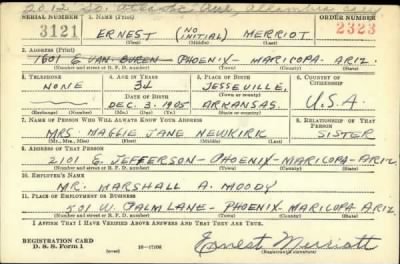 SERIAL NUMBER 1. NAME (Print) ORDER NUMBER
3121 ERNEST (NO INITIAL) MERRIOT 2323
(First) (Middle) (Last)
2. ADDRESS (Print)
1601 E VAN BUREN - PHOENIX - MARICOPA - ARIZ.
(Number and street or R. F. D. number) (Town) (County) (State)
3. TELEPHONE 4. AGE IN YEARS 5. PLACE OF BIRTH 6. COUNTRY OF CITIZENSHIP
NONE 34 JESSEVILLE,
DATE OF BIRTH (Town or county)
DEC. 3. 1905 ARKANSAS. U.S.A.
(Exchange) (No.) (Mo.) (Day) (Yr.) (State or country)
7. NAME OF PERSON WHO WILL ALWAYS KNOW YOUR ADDRESS 8. RELATIONSHIP OF THAT PERSON
MRS. MAGGIE JANE NEWKIRK SISTER
(Mr., Mrs., Miss) (First) (Middle) (Last)
9. ADDRESS OF THAT PERSON
2101 E. JEFFERSON - PHOENIX - MARICOPA - ARIZ.
(Number and street or R. F. D. number) (Town) (County) (State)
10. EMPLOYER'S NAME
MR. MARSHALL A. MOODY
11. PLACE OF EMPLOYMENT OR BUSINESS
501 W. PALM LANE - PHOENIX MARICOPA ARIZ.
(Number and street or R. F. D. number) (Town) (County) (State)
I AFFIRM THAT I HAVE VERIFIED ABOVE ANSWERS AND THAT THEY ARE TRUE.
REGISTRATION CARD
D. S. S. Form 1 16-17105 Ernest Merriott
(Registrant's signature)